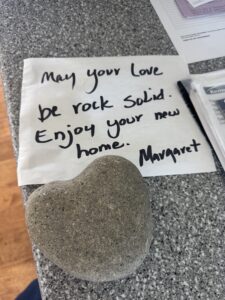 May your Love
be rock solid.
Enjoy your new
home.
Margaret